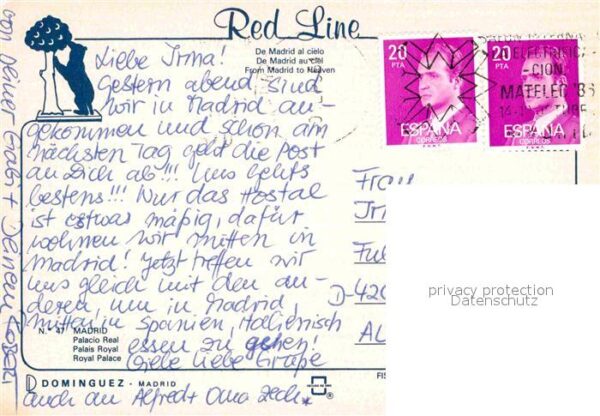 Red Line
De Madrid al cielo
De Madrid au ciel
From Madrid to Heaven
20
PTA
ESPAÑA
CORREOS
20
PTA
ESPAÑA
CORREOS
ELECTRIFICA-
CION
MATELEC '86
Liebe Irma!
Gestern abend sind
wir in Madrid an-
gekommen und schon am
nächsten Tag geht die Post
an Dich ab!!! Uns gehts
bestens!!! Nur das Hostal
ist etwas mäßig, dafür
wohnen wir mitten in
Madrid! Jetzt treffen wir
uns gleich mit den an-
deren um in Madrid,
mitten in Spanien, Italienisch
essen zu gehen!
Viele liebe Grüße
auch an Alfred + Oma Zech
von Deiner Gabi + Deinem Robert
Frau
D-420
N.º 47 MADRID
Palacio Real
Palais Royal
Royal Palace
DOMINGUEZ - MADRID
FIS
privacy protection
Datenschutz